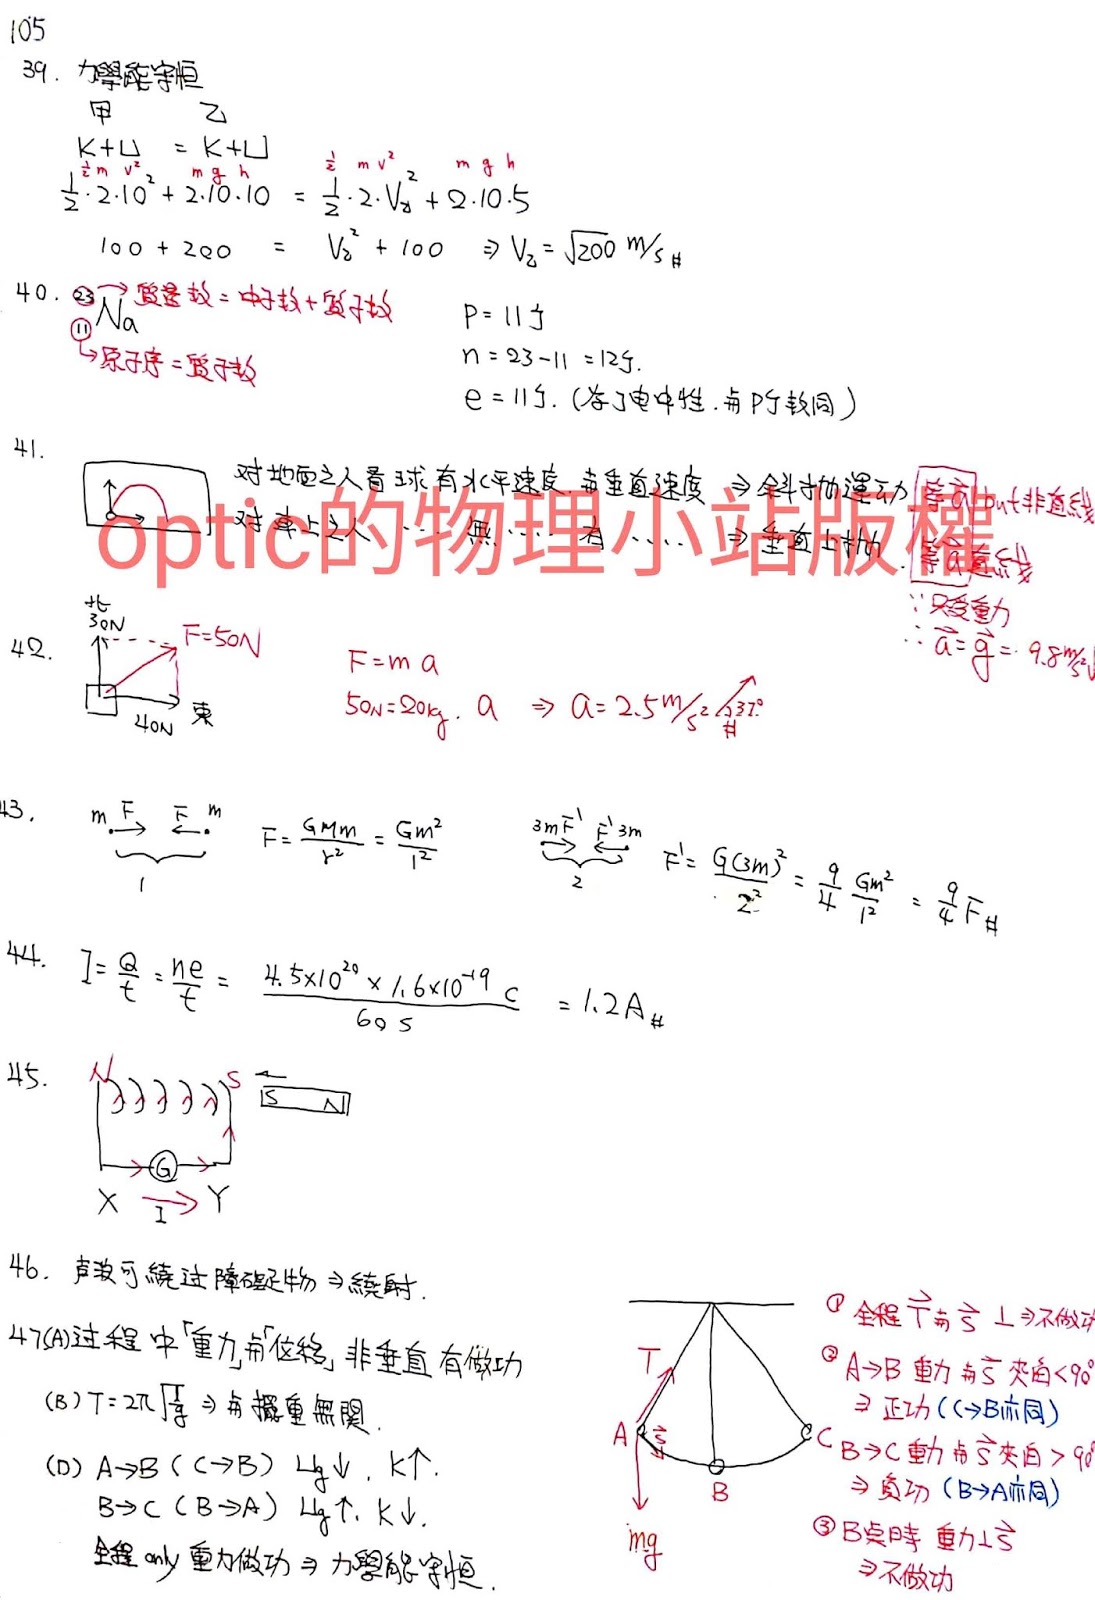 105
39. 力學能守恒
甲 乙
K+U = K+U
½ m v² m g h ½ m v² m g h
½·2·10² + 2·10·10 = ½·2·V乙² + 2·10·5
100 + 200 = V乙² + 100 ⇒ V乙 = √200 m/s #
40. 23 Na → 質量数 = 中子数 + 質子数
11
↳ 原子序 = 質子数
P = 11个
n = 23-11 = 12个.
e = 11个. (为了电中性.与P个数同)
41. 对地面之人看球有水平速度.与垂直速度 ⇒ 斜抛運动 等a but非直線
对車上之人 ‥‥ 無 ‥‥ 有 ‥‥ ⇒ 垂直上抛. 等a直线
optic的物理小站版權
∵ 只受重力
∴ a = g = 9.8 m/s² ↓
42. 北
30N
F=50N
東
40N
F = m a
50N = 20kg. a ⇒ a = 2.5 m/s² 37° #
43. m F F m
1
F = GMm/r² = Gm²/1²
3m F' F' 3m
2
F' = G(3m)²/2² = 9/4 Gm²/1² = 9/4 F #
44. I = Q/t = ne/t = 4.5×10²⁰ × 1.6×10⁻¹⁹ C / 60 s = 1.2A #
45. N S
S N
G
X I Y
46. 声波可繞过障礙物 ⇒ 繞射.
47(A) 过程中「重力」与「位移」非垂直 有做功
(B) T = 2π√l/g ⇒ 与擺重無關.
(D) A→B (C→B) Ug↓. K↑.
B→C (B→A) Ug↑. K↓.
全程 only 重力做功 ⇒ 力學能守恒.
T
A S C
B
mg
① 全程 T 与 S ⊥ ⇒ 不做功
② A→B 重力 与 S 夾角<90°
⇒ 正功 (C→B亦同)
B→C 重力 与 S 夾角 > 90°
⇒ 負功 (B→A亦同)
③ B点時 重力⊥S
⇒ 不做功